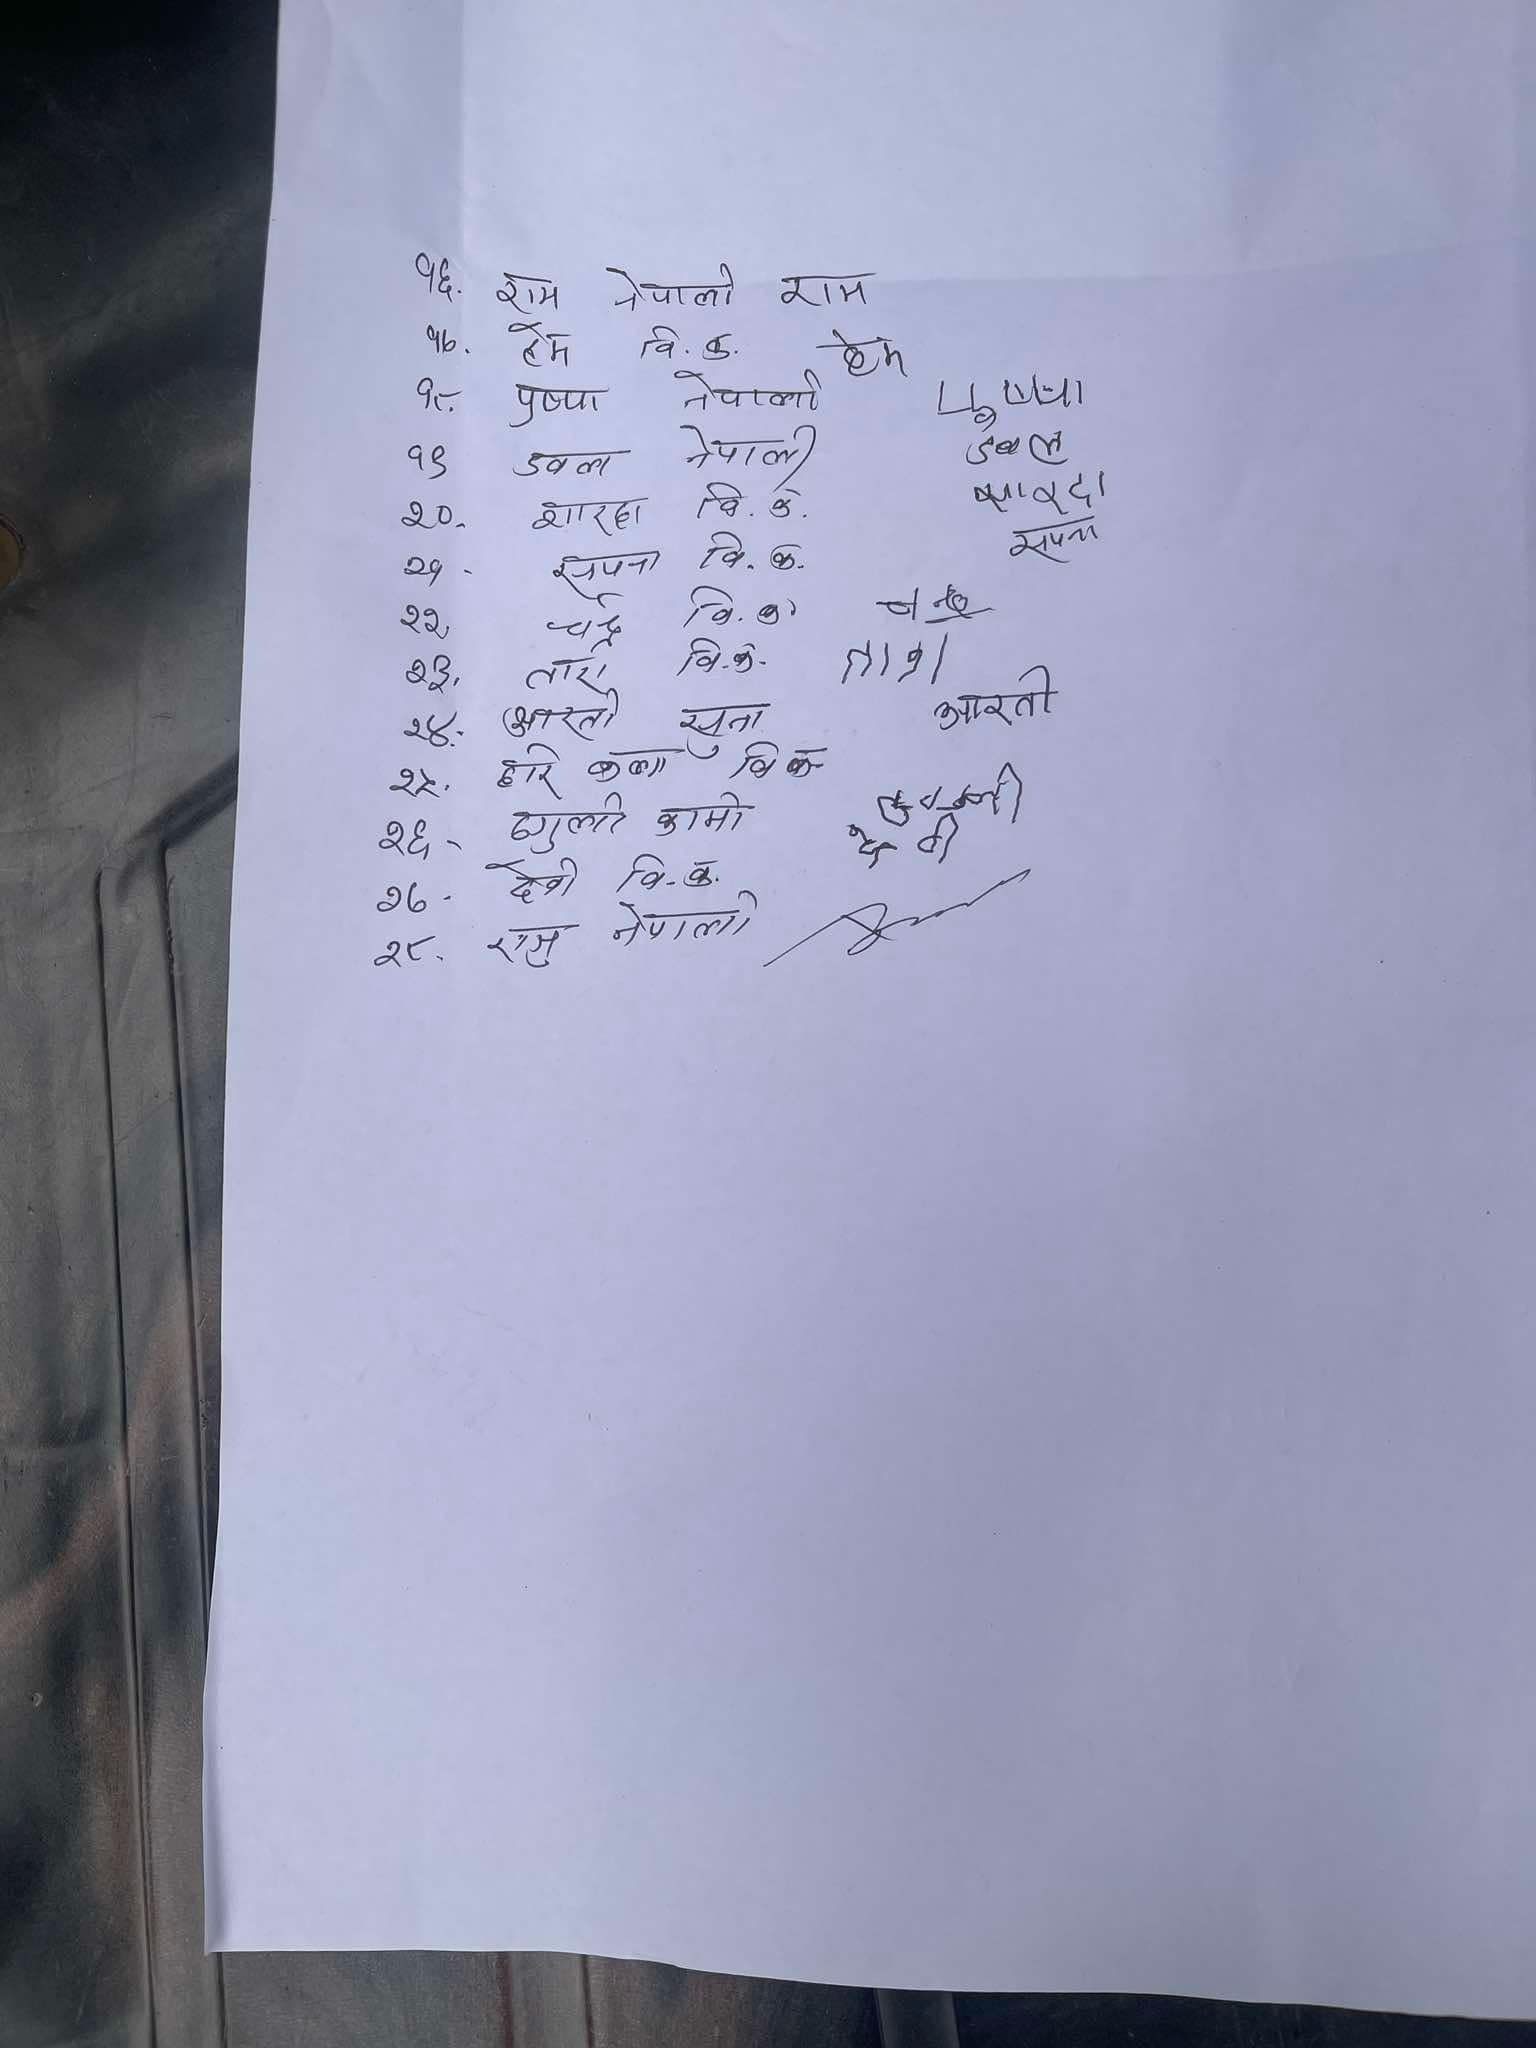 १६. राम नेपाली राम
१७. हेम वि.क. हेम
१८. पुष्पा नेपाली पुष्पा
१९ डवला नेपाली डबल
२०. शारदा वि.क. सारदा
२१. सपना वि.क. सपना
२२. चन्द्र वि.क.
२३. तारा वि.क. तारा
२४. आरती सुना आरती
२५. हरि कला वि.क
२६. कामी
२७. देवी वि.क. देवी
२८. रामु नेपाली